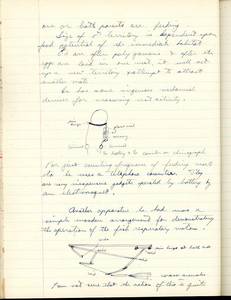 are or both parents are feeding.
Size of ♂ territory is dependent upon
food potential of the immediate habitat
♂'s are often polygamous & after its
eggs are laid in one nest, it will set
up a new territory & attempt to attract
another mate.
He has some ingenious mechanical
devices for measuring nest activity.
to battery & to counter or chronograph
For just counting frequency of feeding visits
etc. he uses a telephone counter. They
are very inexpensive gadgets operated by battery by
an electromagnet.
Another apparatus he had was a
simple wooden arrangement for demonstrating
the operation of the first respiratory valves.
I am not sure that the action of this is quite